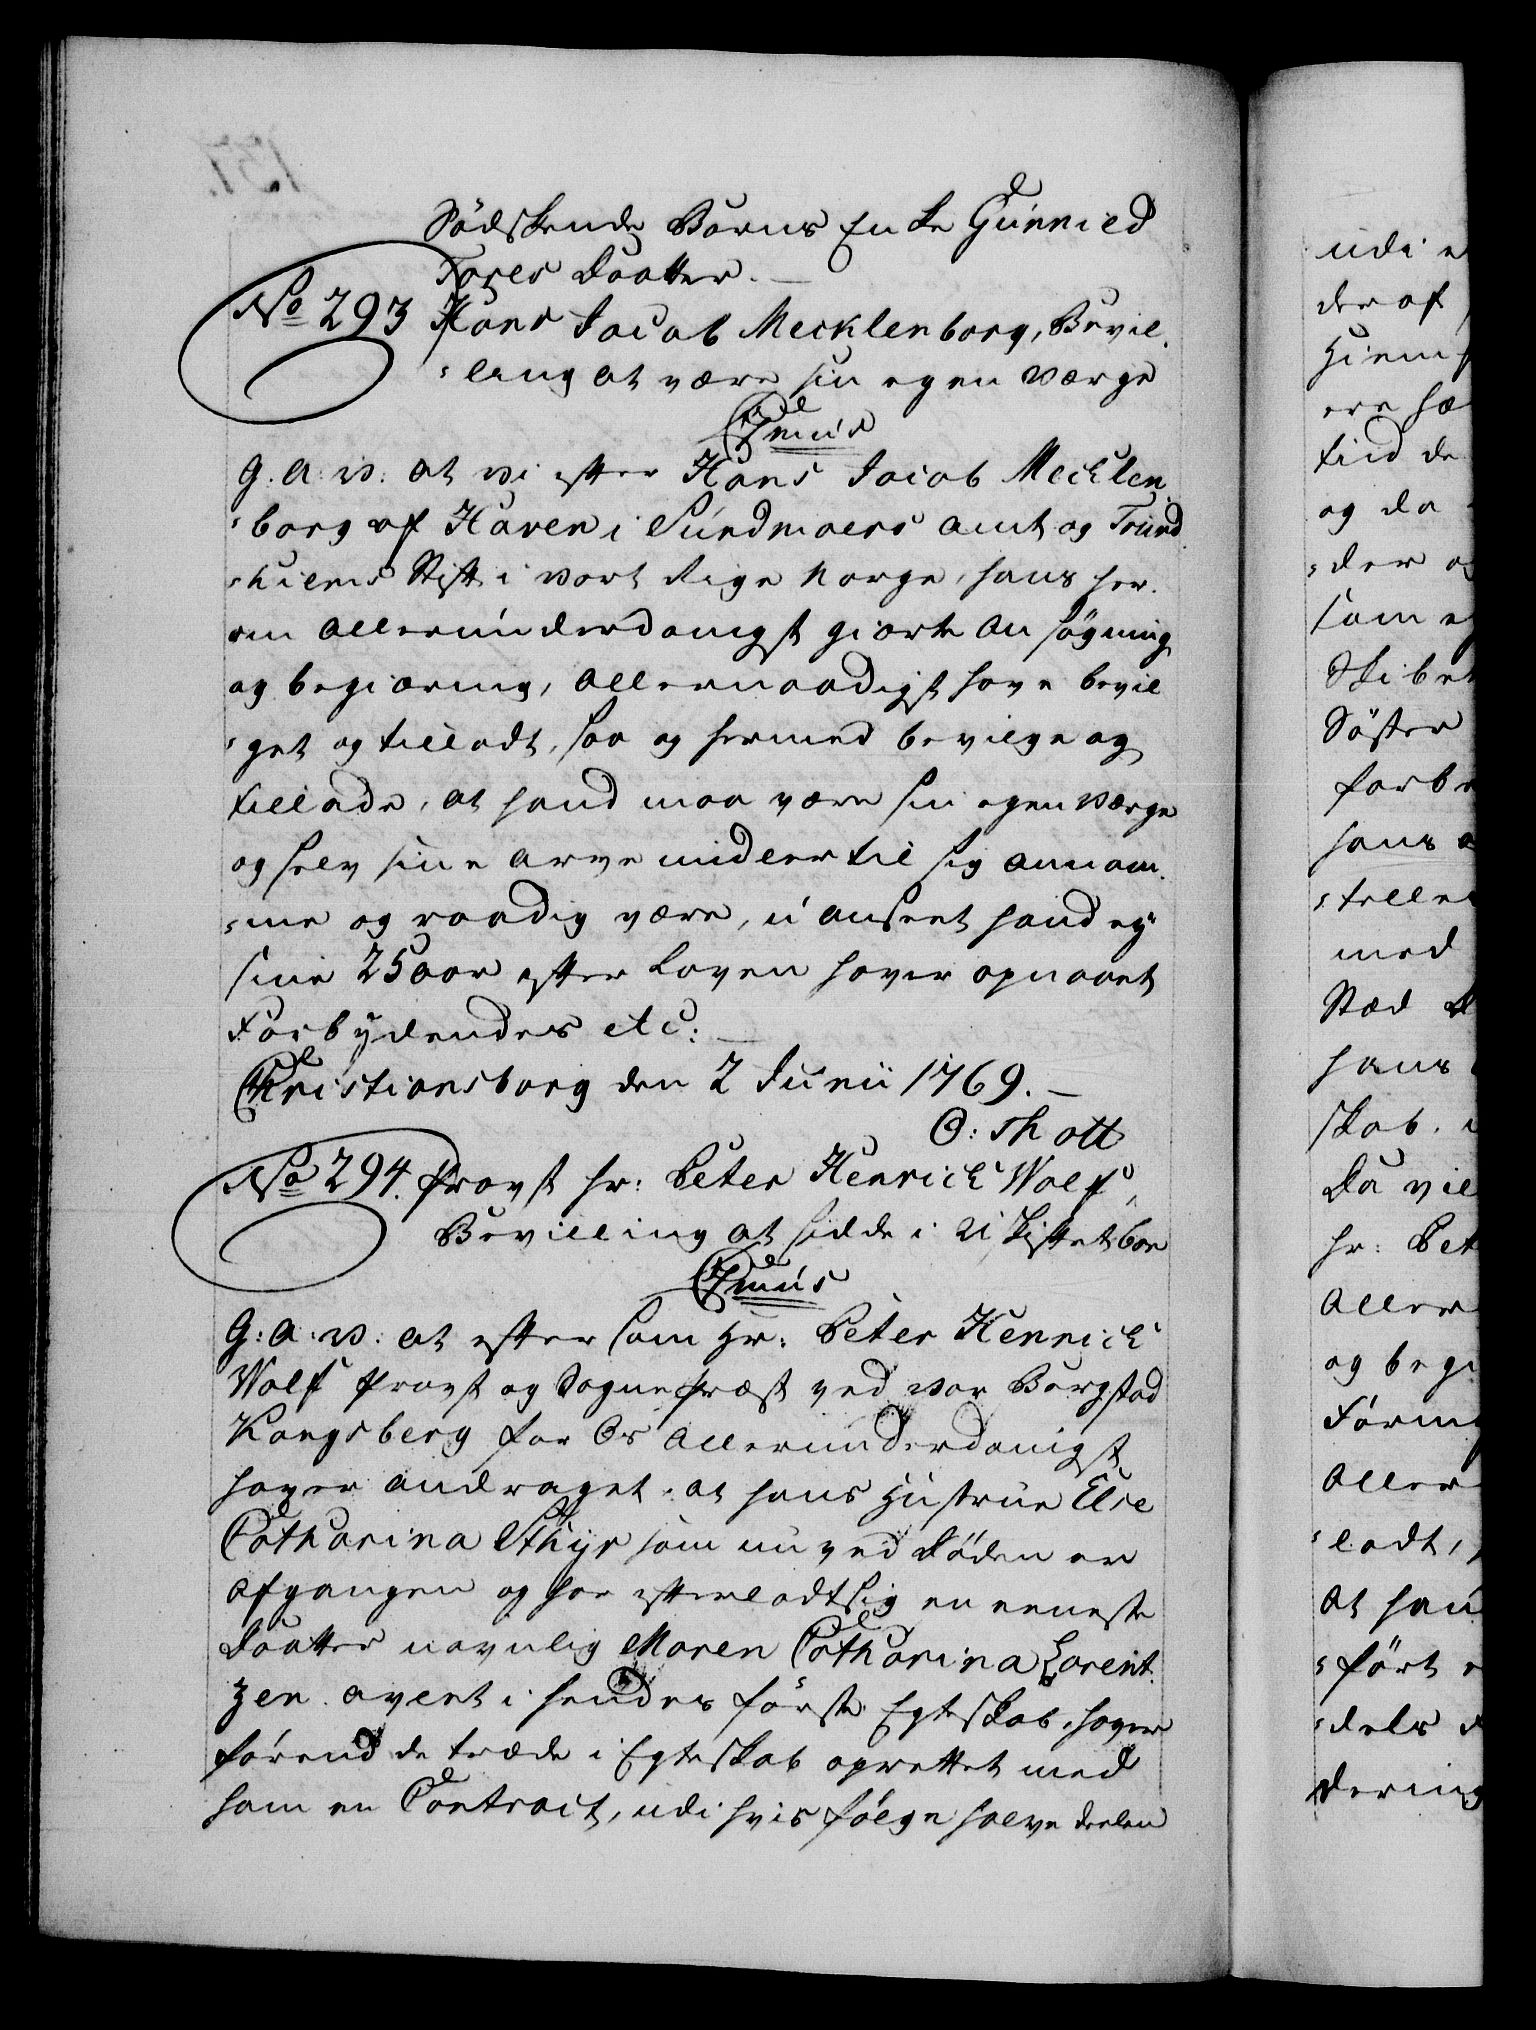 Södskende Barns Enke Gunnild
Tores Daatter.
No 293 Hans Jacob Mecklenborg, Bevil,
-ling at være sin egen Værge
Cmus
G. A. V. at vi efter Hans Jacob Mecklen
-borg af Haven i Sundmoers amt og Trund
-hiems Stift i vort Rige Norge, hans her-
om allerunderdanigst giorte Ansøgning
og begiæring, allernaadigst have bevil
-get og tilladt, saa og hermed bevilge og
tillade, at hand maa være sin egen Værge
og selv sine Arve midler til sig annam-
-me og raadig være, uanseet hand ey
sine 25 aar efter Loven haver opnaaet
Forbydendes etc:
Christiansborg den 2 Junii 1769.
O: Thott
No 294. Provst Hr: Peter Henrich Wolf,
Bevilling at sidde i uskiftet boe
Cmus
G: A: V: at eftersom Hr: Peter Henrich
Wolf Provst og Sognepræst ved vor Bergstad
Kongsberg for Os allerunderdanigst
haver andraget, at hans Hustrue Else
Catharina Sthyr som nu ved Døden er
afgangen og har efterladt sig en eeneste
Daatter navnlig Maren Catharina Lorent-
zen avlet i hendes første Egteskab, haver
førend de træde i Egteskab oprettet med
ham en Contract, udi hvis følge halve deelen
udi e
der af
Hiem
ere hæ
tind de
og da
-der og
som e
Skibet
Søster
forbe
hans
-telle
med
Stæd
hans
skab.
Da vil
Hr: Pet
Aller
og begi
Føring
Aller
-ladt,
At han
-ført
-dels
dering